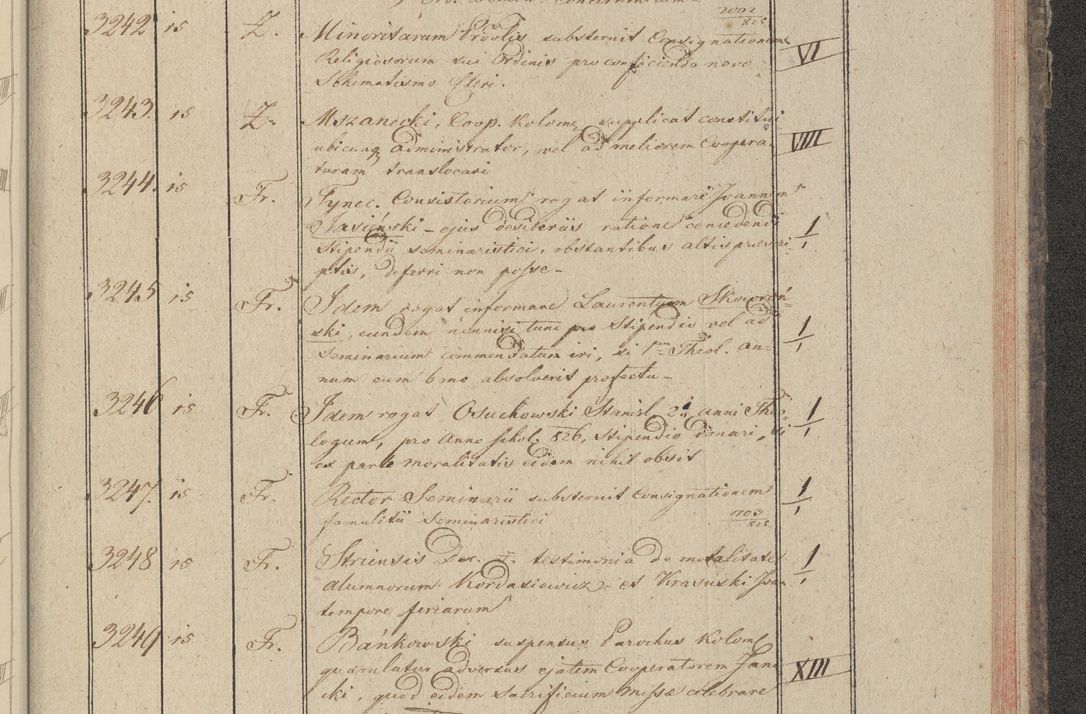 3242 15 Z. Minoritarum Prov͠lis substernit Consignationem VI
Religiosorum sui Ordinis pro conficiendo novo
Schematismo Cleri.
3243. 15 Z. Mszanecki, Coop. Kolom. supplicat constitui VIII
ubicunq administrator, vel ad meliorem Coopera-
turam translocari
3244. 15 Fr. Tynec. Consistorium rogat informare Joannem
Jasiński – ejus desideriis ratione concedendi 1/1
Stipendii seminaristici, obstantibus altis præscri
ptis, deferri non posse –
3245 15 Fr. Idem rogat informare Laurentyum Skowroń-
ski, eundem nonnisi tunc pro Stipendio vel ad 1/1
Seminarium commendatum iri, si Theol. An-
num cum bono absolverit profectu –
3246 15 Fr. Idem rogat Osuchowski Stanisl. 2i anni Theo- 1/1
logum, pro Anno schol. 826, Stipendio donari, si
ex parte moralitatis eidem nihil obsit
3247. 15 Fr. Rector Seminarii substernit Consignationem 1/1
famulitii Seminaristici 825
3248 15 Fr. Striensis Dec. testimonia de moralitate 1/1
Alumnorum Kordasiewicz et Krasuski
tempore feriarum
3249 15 Fr. Bańkowski suspensus Parochus Kolom.
quærulatur adversus ejatem Cooperatorem Jani XIII
cki, quod eidem Sacrificium missæ celebrare